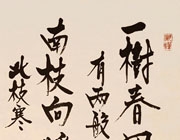 一樹春風
有兩般
南枝向暖
北枝寒